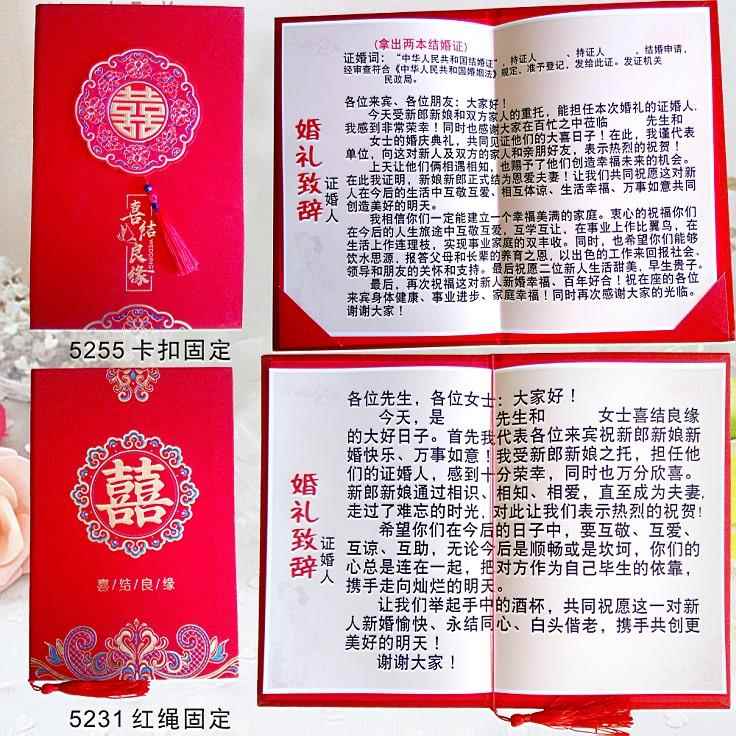 囍
喜结良缘
WEDDING
5255 卡扣固定
婚礼致辞
证婚人
(拿出两本结婚证)
证婚词：“中华人民共和国结婚证”，持证人 、持证人 ，结婚申请，
经审查符合《中华人民共和国婚姻法》规定，准予登记，发给此证。发证机关
民政局。
各位来宾、各位朋友：大家好！
今天受新郎新娘和双方家人的重托，能担任本次婚礼的证婚人，
我感到非常荣幸！同时也感谢大家在百忙之中莅临 先生和
女士的婚庆典礼，共同见证他们的大喜日子！在此，我谨代表
单位，向这对新人及双方的家人和亲朋好友，表示热烈的祝贺！
上天让他们俩相遇相知，也赐予了他们创造幸福未来的机会。
在此我证明，新娘新郎正式结为恩爱夫妻！让我们共同祝愿这对新
人在今后的生活中互敬互爱、相互体谅、生活幸福、万事如意共同
创造美好的明天。
我相信你们一定能建立一个幸福美满的家庭。衷心的祝福你们
在今后的人生旅途中互敬互爱，互学互让、在事业上作比翼鸟，在
生活上作连理枝，实现事业家庭的双丰收。同时，也希望你们能够
饮水思源，报答父母和长辈的养育之恩，以出色的工作来回报社会、
领导和朋友的关怀和支持。最后祝愿二位新人生活甜美，早生贵子。
最后，再次祝福这对新人新婚幸福、百年好合！祝在座的各位
来宾身体健康、事业进步、家庭幸福！同时再次感谢大家的光临。
谢谢大家！
囍
喜/结/良/缘
5231 红绳固定
婚礼致辞
证婚人
各位先生，各位女士：大家好！
今天，是 先生和 女士喜结良缘
的大好日子。首先我代表各位来宾祝新郎新娘新
婚快乐、万事如意！我受新郎新娘之托，担任他
们的证婚人，感到十分荣幸，同时也万分欣喜。
新郎新娘通过相识、相知、相爱，直至成为夫妻，
走过了难忘的时光，对此让我们表示热烈的祝贺！
希望你们在今后的日子中，要互敬、互爱、
互谅、互助，无论今后是顺畅或是坎坷，你们的
心总是连在一起，把对方作为自己毕生的依靠，
携手走向灿烂的明天。
让我们举起手中的酒杯，共同祝愿这一对新
人新婚愉快、永结同心、白头偕老，携手共创更
美好的明天！
谢谢大家！